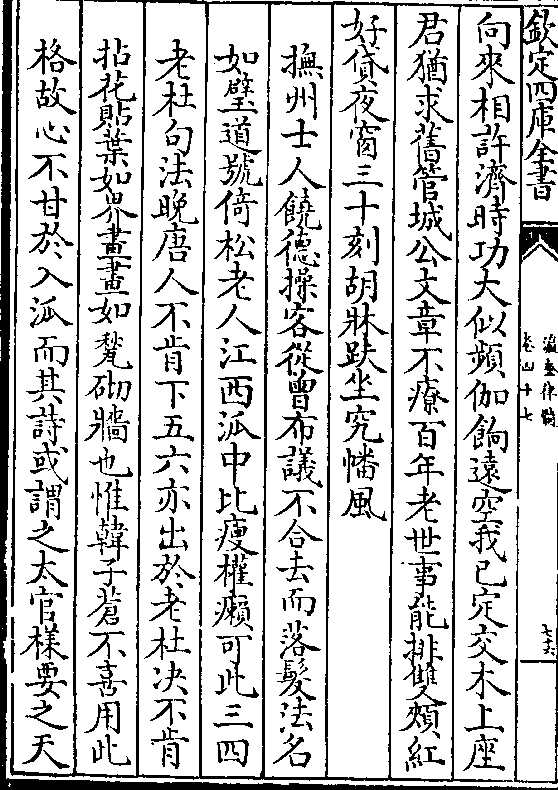 欽定四庫全書
瀛奎律髓
卷四十七
七六
向來相許濟時功大似頻伽餉遠空我已定交木上座
君猶求舊管城公文章不療百年老世事能排雙頰紅
好貸夜窗三十刻胡牀趺坐究幡風
撫州士人饒德操客從曾布議不合去而落髮法名
如璧道號倚松老人江西派中比瘦權癩可此三四
老杜句法晚唐人不肯下五六亦出於老杜决不肯
拈花貼葉如界畫畫如甃砌牆也惟韓子蒼不喜用此
格故心不甘於入派而其詩或謂之太官様要之天